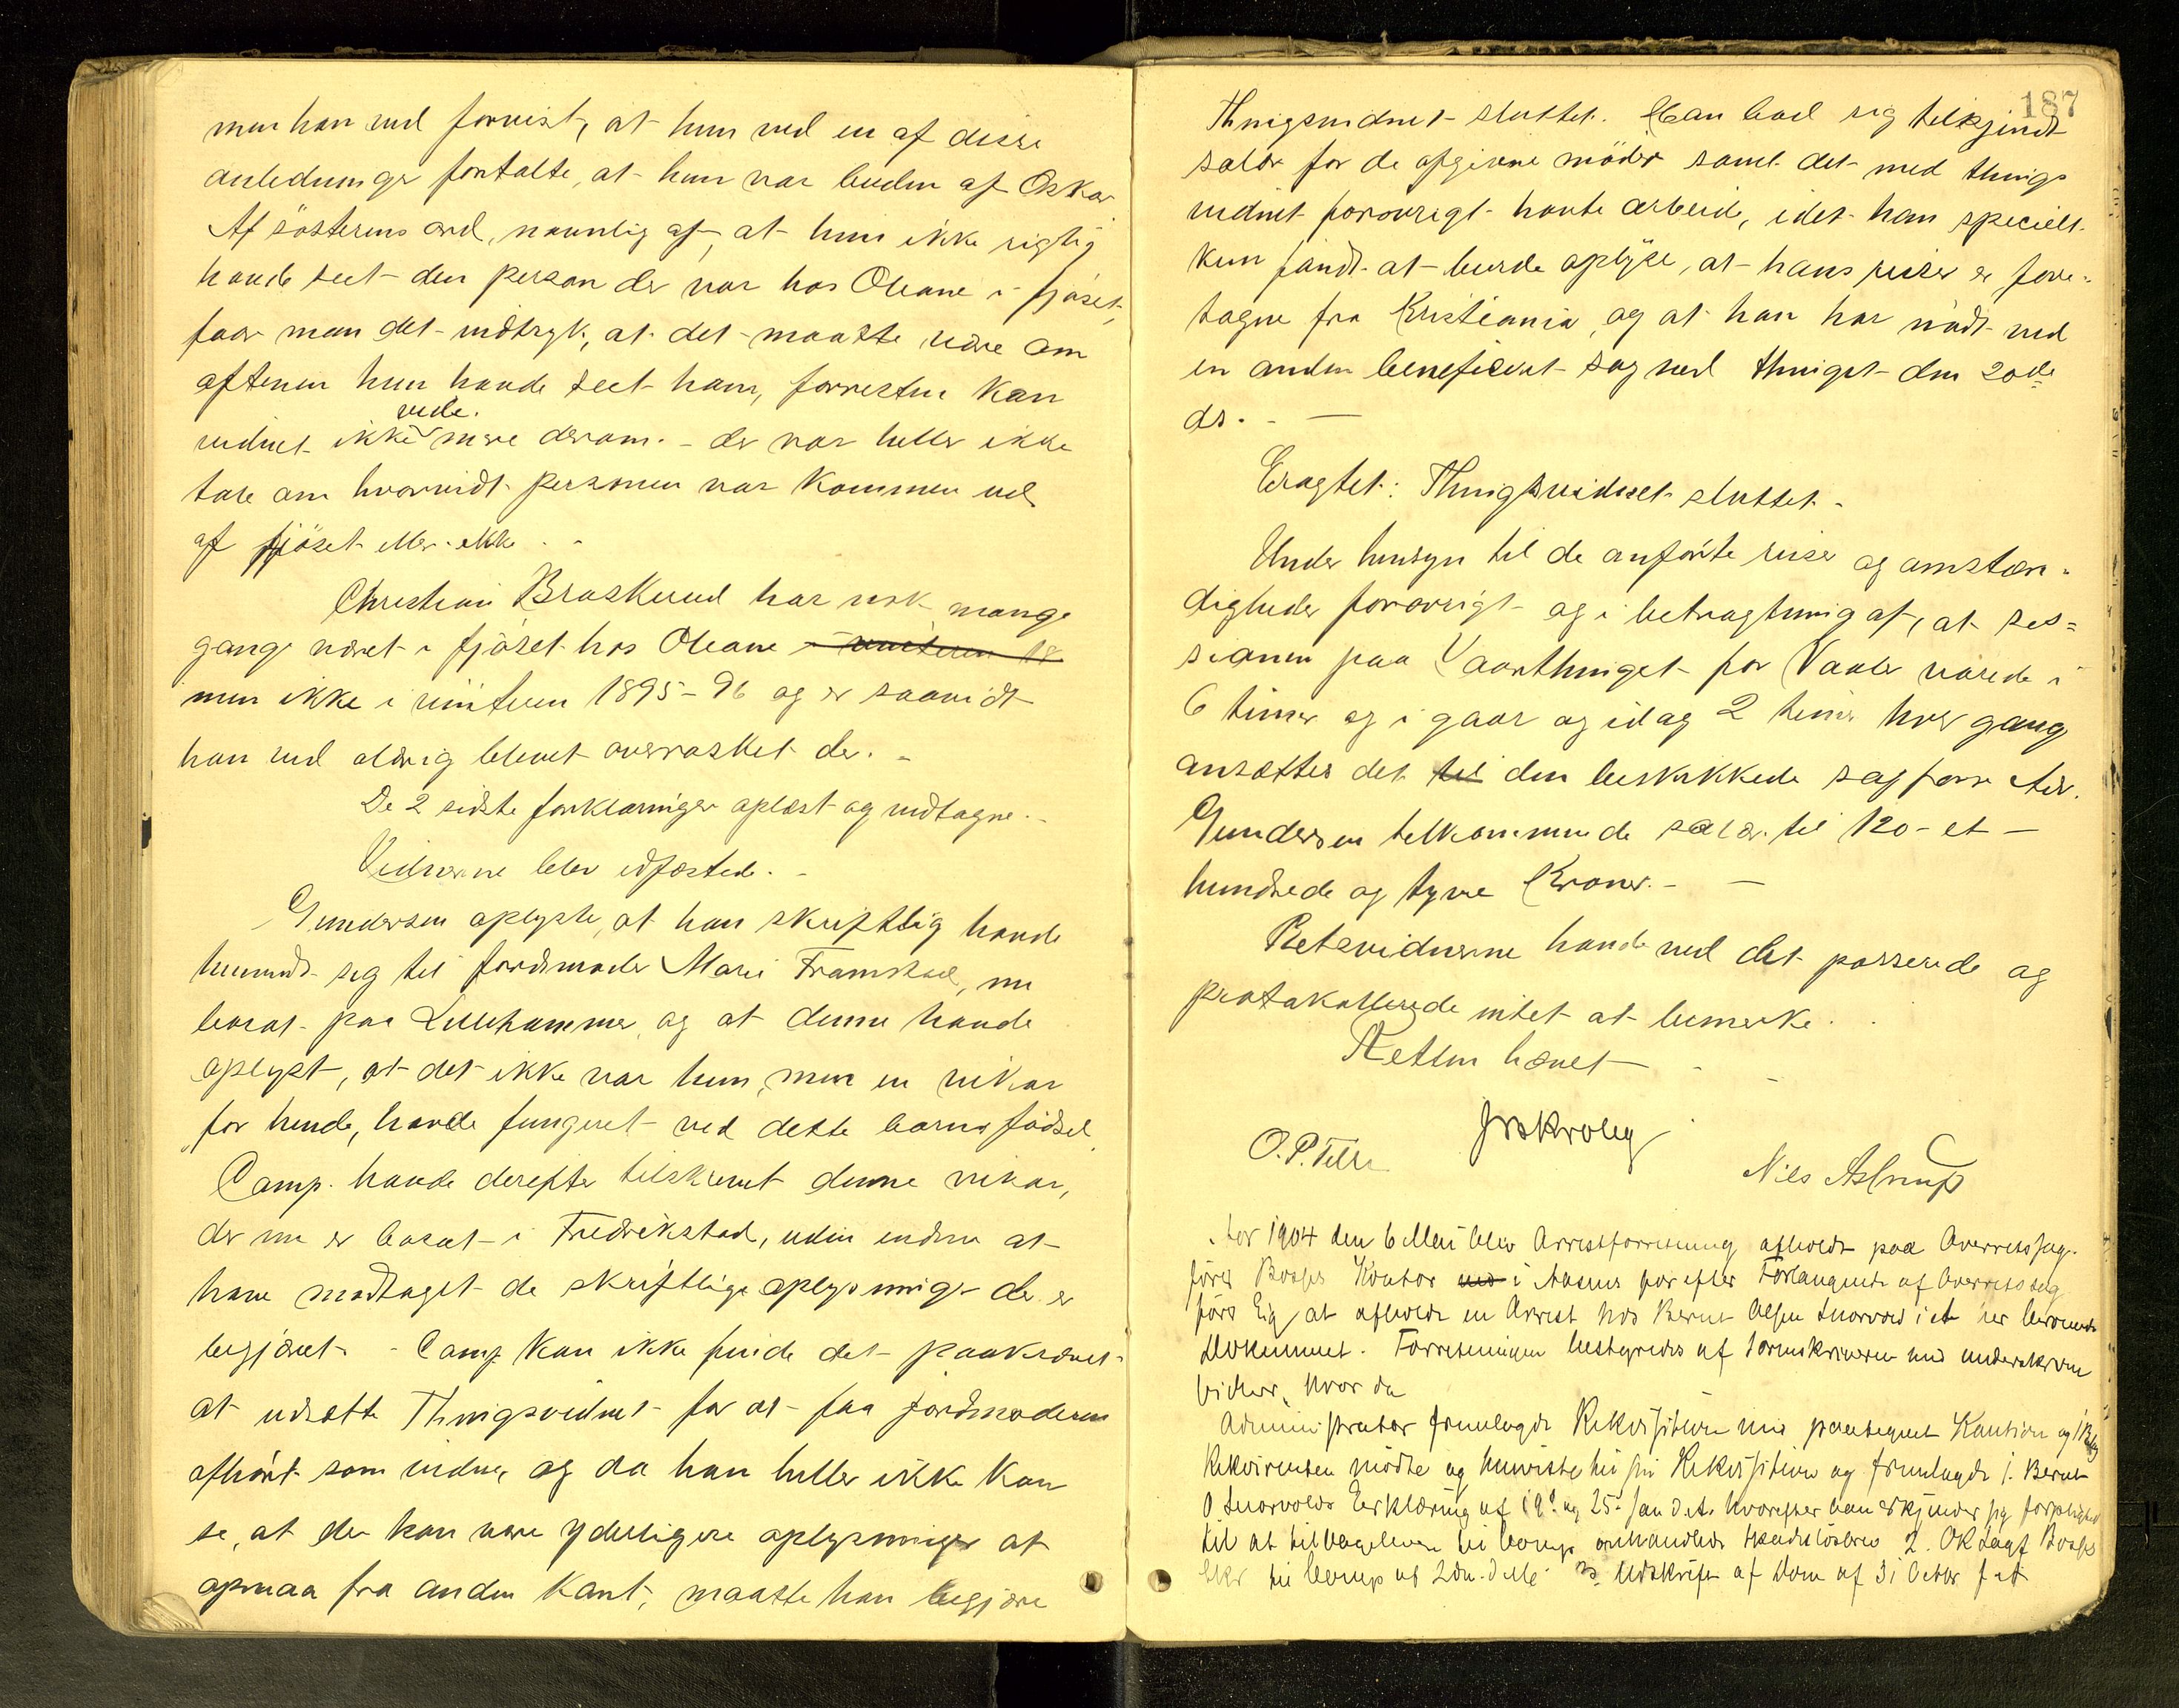 men han ved forvist, at hun ved en af disse
anledninger fortalte, at hun var buden af Oskar
Af søsterens ord, navnlig af, at hun ikke rigtig
havde seet den person der var hos Oleane i fjøset,
faar man det indtryk, at det maatte være om
aftenen hun havde seet ham, forresten kan
vide.
vidnet ikke mere derom. - der var heller ikke
tale om hvorvidt personen var kommen ud
af fjøset eller ikke. -
Christian Braskerud har nok mange
gange været i fjøset hos Oleane i vinteren 18
men ikke i vinteren 1895-96 og er saavidt
han ved aldrig blevet overrasket der. -
De 2 sidste forklaringer oplæst og vedtagne. -
Vidnerne blev edfæstede. -
Gundersen oplyste, at han skriftlig havde
henvendt sig til jordmoder Mari Framstad, nu
bosat paa Lillehammer, og at denne havde
oplyst, at det ikke var hun, men en vikar
for hende, havde fungeret ved dette barns fødsel.
Comp. havde derefter tilskrevet denne vikar,
der nu er bosat i Fredrikstad, uden endnu at
have modtaget de skriftlige oplysninger der er
begjæret. - Comp. kan ikke finde det paakrævet
at udsætte Thingsvidnet for at faa jordmoderen
afhørt som vidne, og da han heller ikke kan
se, at der kan være yderligere oplysninger at
opnaa fra anden kant, maatte han begjære
187
Thingsvidnet sluttet. Han bad sig tilkjendt
salær for de afgivne møder samt det med things
vidnet forøvrigt havte arbeid, idet han specielt
kun fandt at burde oplyse, at hans reiser er fore-
tagne fra Kristiania, og at han har mødt ved
en anden beneficeret sag ved thinget den 20de
ds. - —
Eragtet: Thingsvidnet sluttet. -
Under hensyn til de anførte reiser og omstæn-
digheder forøvrigt og i betragtning af, at ses=
sionen paa Vaarthinget for Vaaler varede i
6 timer og i gaar og idag 2 timer hver gang
ansættes det til den beskikkede sagfører Adv.
Gundersen tilkommende salær til 120 - et -
hundrede og tyve Kroner. - —
Retsvidnerne havde ved det passerede og
protokollerede intet at bemærke. .
Retten hævet - -
O.P. Nils Astrup
1904 den 6 Mai blev Arrestforretning afholdt paa Overretssag-
fører Kontor med i for efter Forlangende af Overretssag
fører at afholde en Arrest hos Bernt Olsen i et her beroende
Dokument. Forretningen bestyredes af Sorenskriveren med underskrevne
Vidner, hvor da
Administrator fremlagde Rekvisition med paategnet Kaution og
Rekvirenten mødte og henviste til sin Rekvisition og fremlagde 1. Bernt
O. Erklæring af 19de og 25de Jan d.A. hvorefter han erkjender sig forpligtet
til at tilbagelevere til Comp omhandlede Skadesløsbrev 2. OR Sagf
til Comp af 2den d.M. 3. Udskrift af Dom af 31 Octbr f A